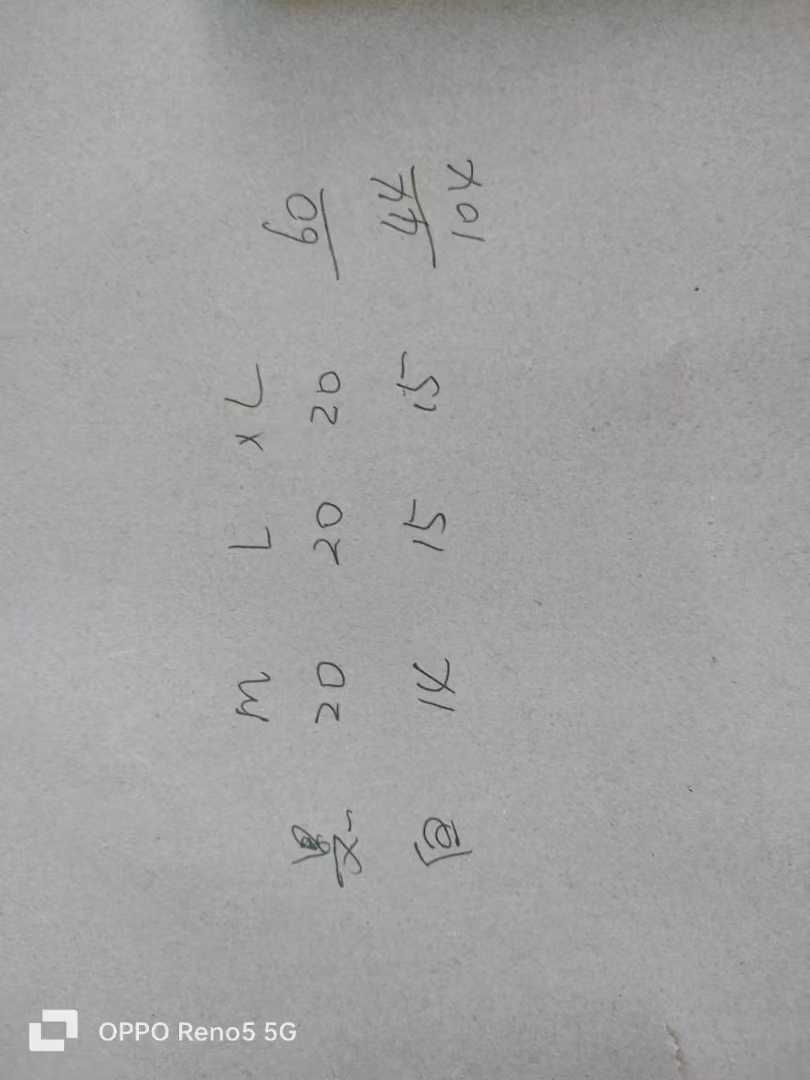 M L XL
黑 20 20 20 60
白 14 15 15 44
104
OPPO Reno5 5G